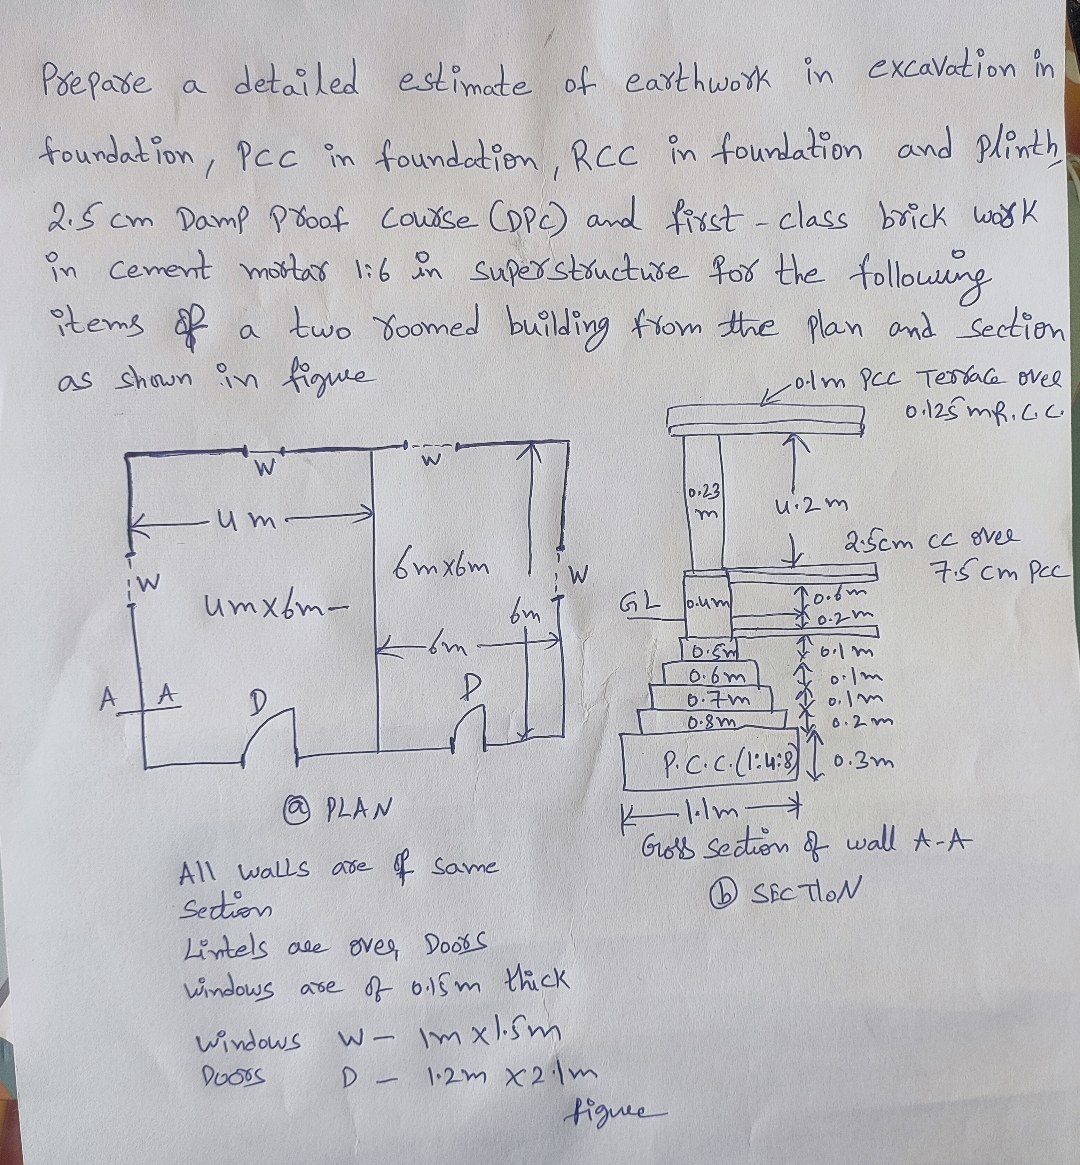 Prepare a detailed estimate of earthwork in excavation in
foundation, PCC in foundation, RCC in foundation and plinth,
2.5 cm Damp proof course (DPC) and first-class brick work
in cement mortar 1:6 in superstructure for the following
items of a two roomed building from the plan and section
as shown in figure
0.1m PCC Terrace over
0.125mR.C.C.
W
W
4m
0.23
m
4.2m
2.5cm cc over
7.5cm pcc
6mx6m
W
W
4mx6m
6m
6m
GL
0.4m
0.6m
0.2m
0.5m
0.1m
0.6m
0.1m
0.7m
0.1m
0.8m
0.2m
A A
D
D
P.C.C.(1:4:8)
0.3m
1.1m
Cross section of wall A-A
(b) SECTION
(a) PLAN
All walls are of same
section
Lintels are over Doors
windows are of 0.15m thick
windows W - 1m x1.5m
Doors D - 1.2m x2.1m
figure